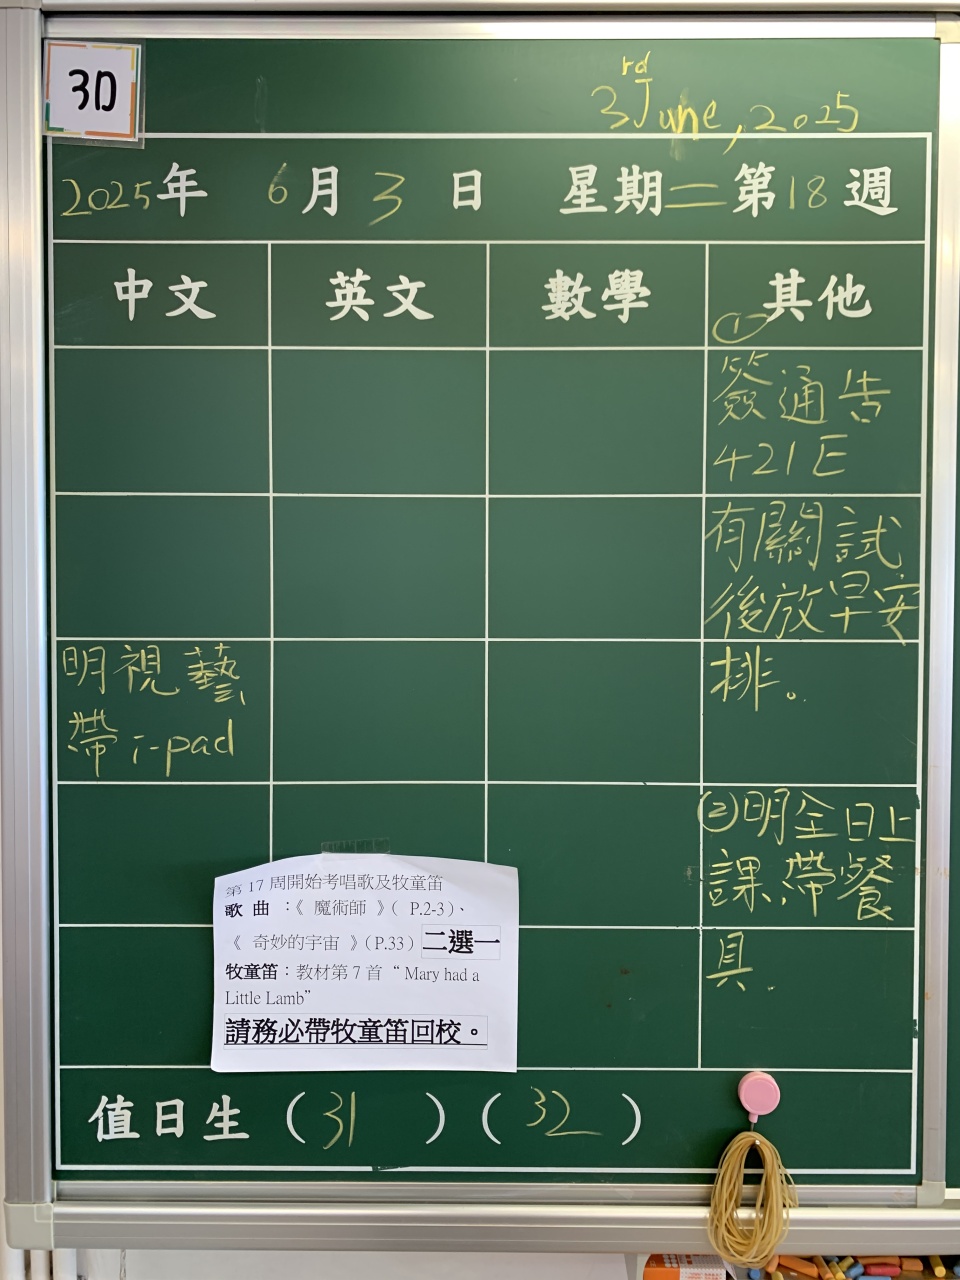 3D
3rd June, 2025
2025年 6月3日 星期二 第18週
中文 英文 數學 其他
①
簽通告
421E
有關試
後放早安
排。
明視藝
帶i-pad
②明全日上
課,帶餐
具.
第 17 周開始考唱歌及牧童笛
歌 曲 :《 魔術師 》( P.2-3)、
《 奇妙的宇宙 》(P.33) 二選一
牧童笛:教材第 7 首 “ Mary had a
Little Lamb”
請務必帶牧童笛回校。
值日生 (31) (32)